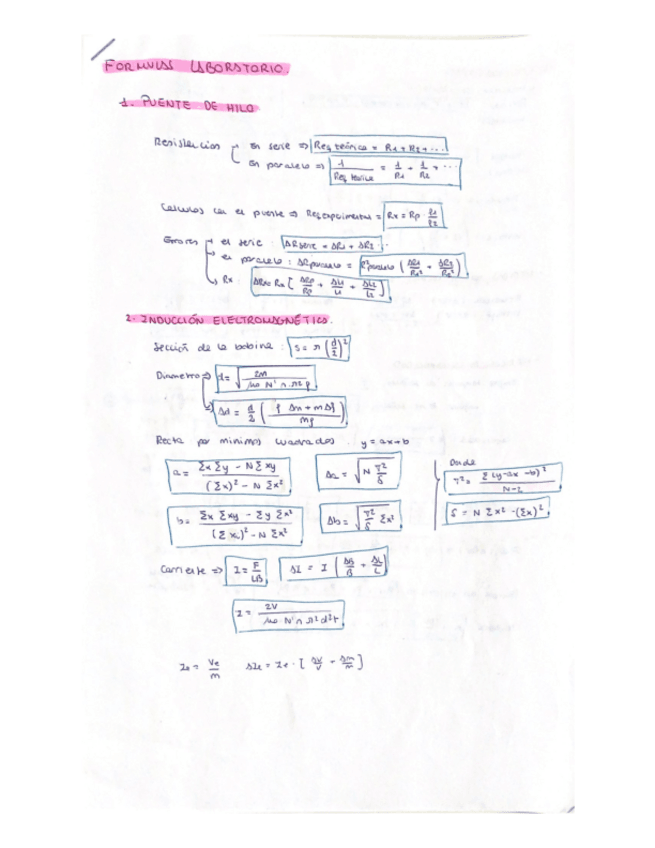 FORMULAS LABORATORIO.
1. PUENTE DE HILO
Resistencias en serie ⇒ Req teórica = R1 + R2 + ...
En paralelo ⇒ 1/Req teórica = 1/R1 + 1/R2 + ...
Calculos con el puente ⇒ Req experimental = Rx = Rp · l1/l2
Errores → en serie : ΔRserie = ΔR1 + ΔR2 ...
→ en paralelo : ΔRparalelo = R²paralelo (ΔR1/R1² + ΔR2/R2²)
→ Rx : ΔRx = Rx [ΔRp/Rp + Δl1/l1 + Δl2/l2]
2. INDUCCIÓN ELECTROMAGNÉTICA.
Sección de la bobina : S = π (d/2)²
Diametro ⇒ d = √(2m / μ0 N' n π² f)
⇒ Δd = d/2 (f Δm + m Δf / mf)
Recta por minimos cuadrados . y = ax+b
a = Σx Σy - N Σxy / (Σx)² - N Σx² Δa = √(N σ²/δ) Donde σ² = Σ(y-ax-b)² / N-2
b = Σx Σxy - Σy Σx² / (Σx)² - N Σx² Δb = √(σ²/δ Σx²) δ = N Σx² - (Σx)²
Corriente ⇒ I = F/LB ΔI = I (ΔB/B + ΔL/L)
I = 2V / μ0 N' n π² d² f
Ie = Ve/m ΔIe = Ie · [ΔV/V + Δm/m]